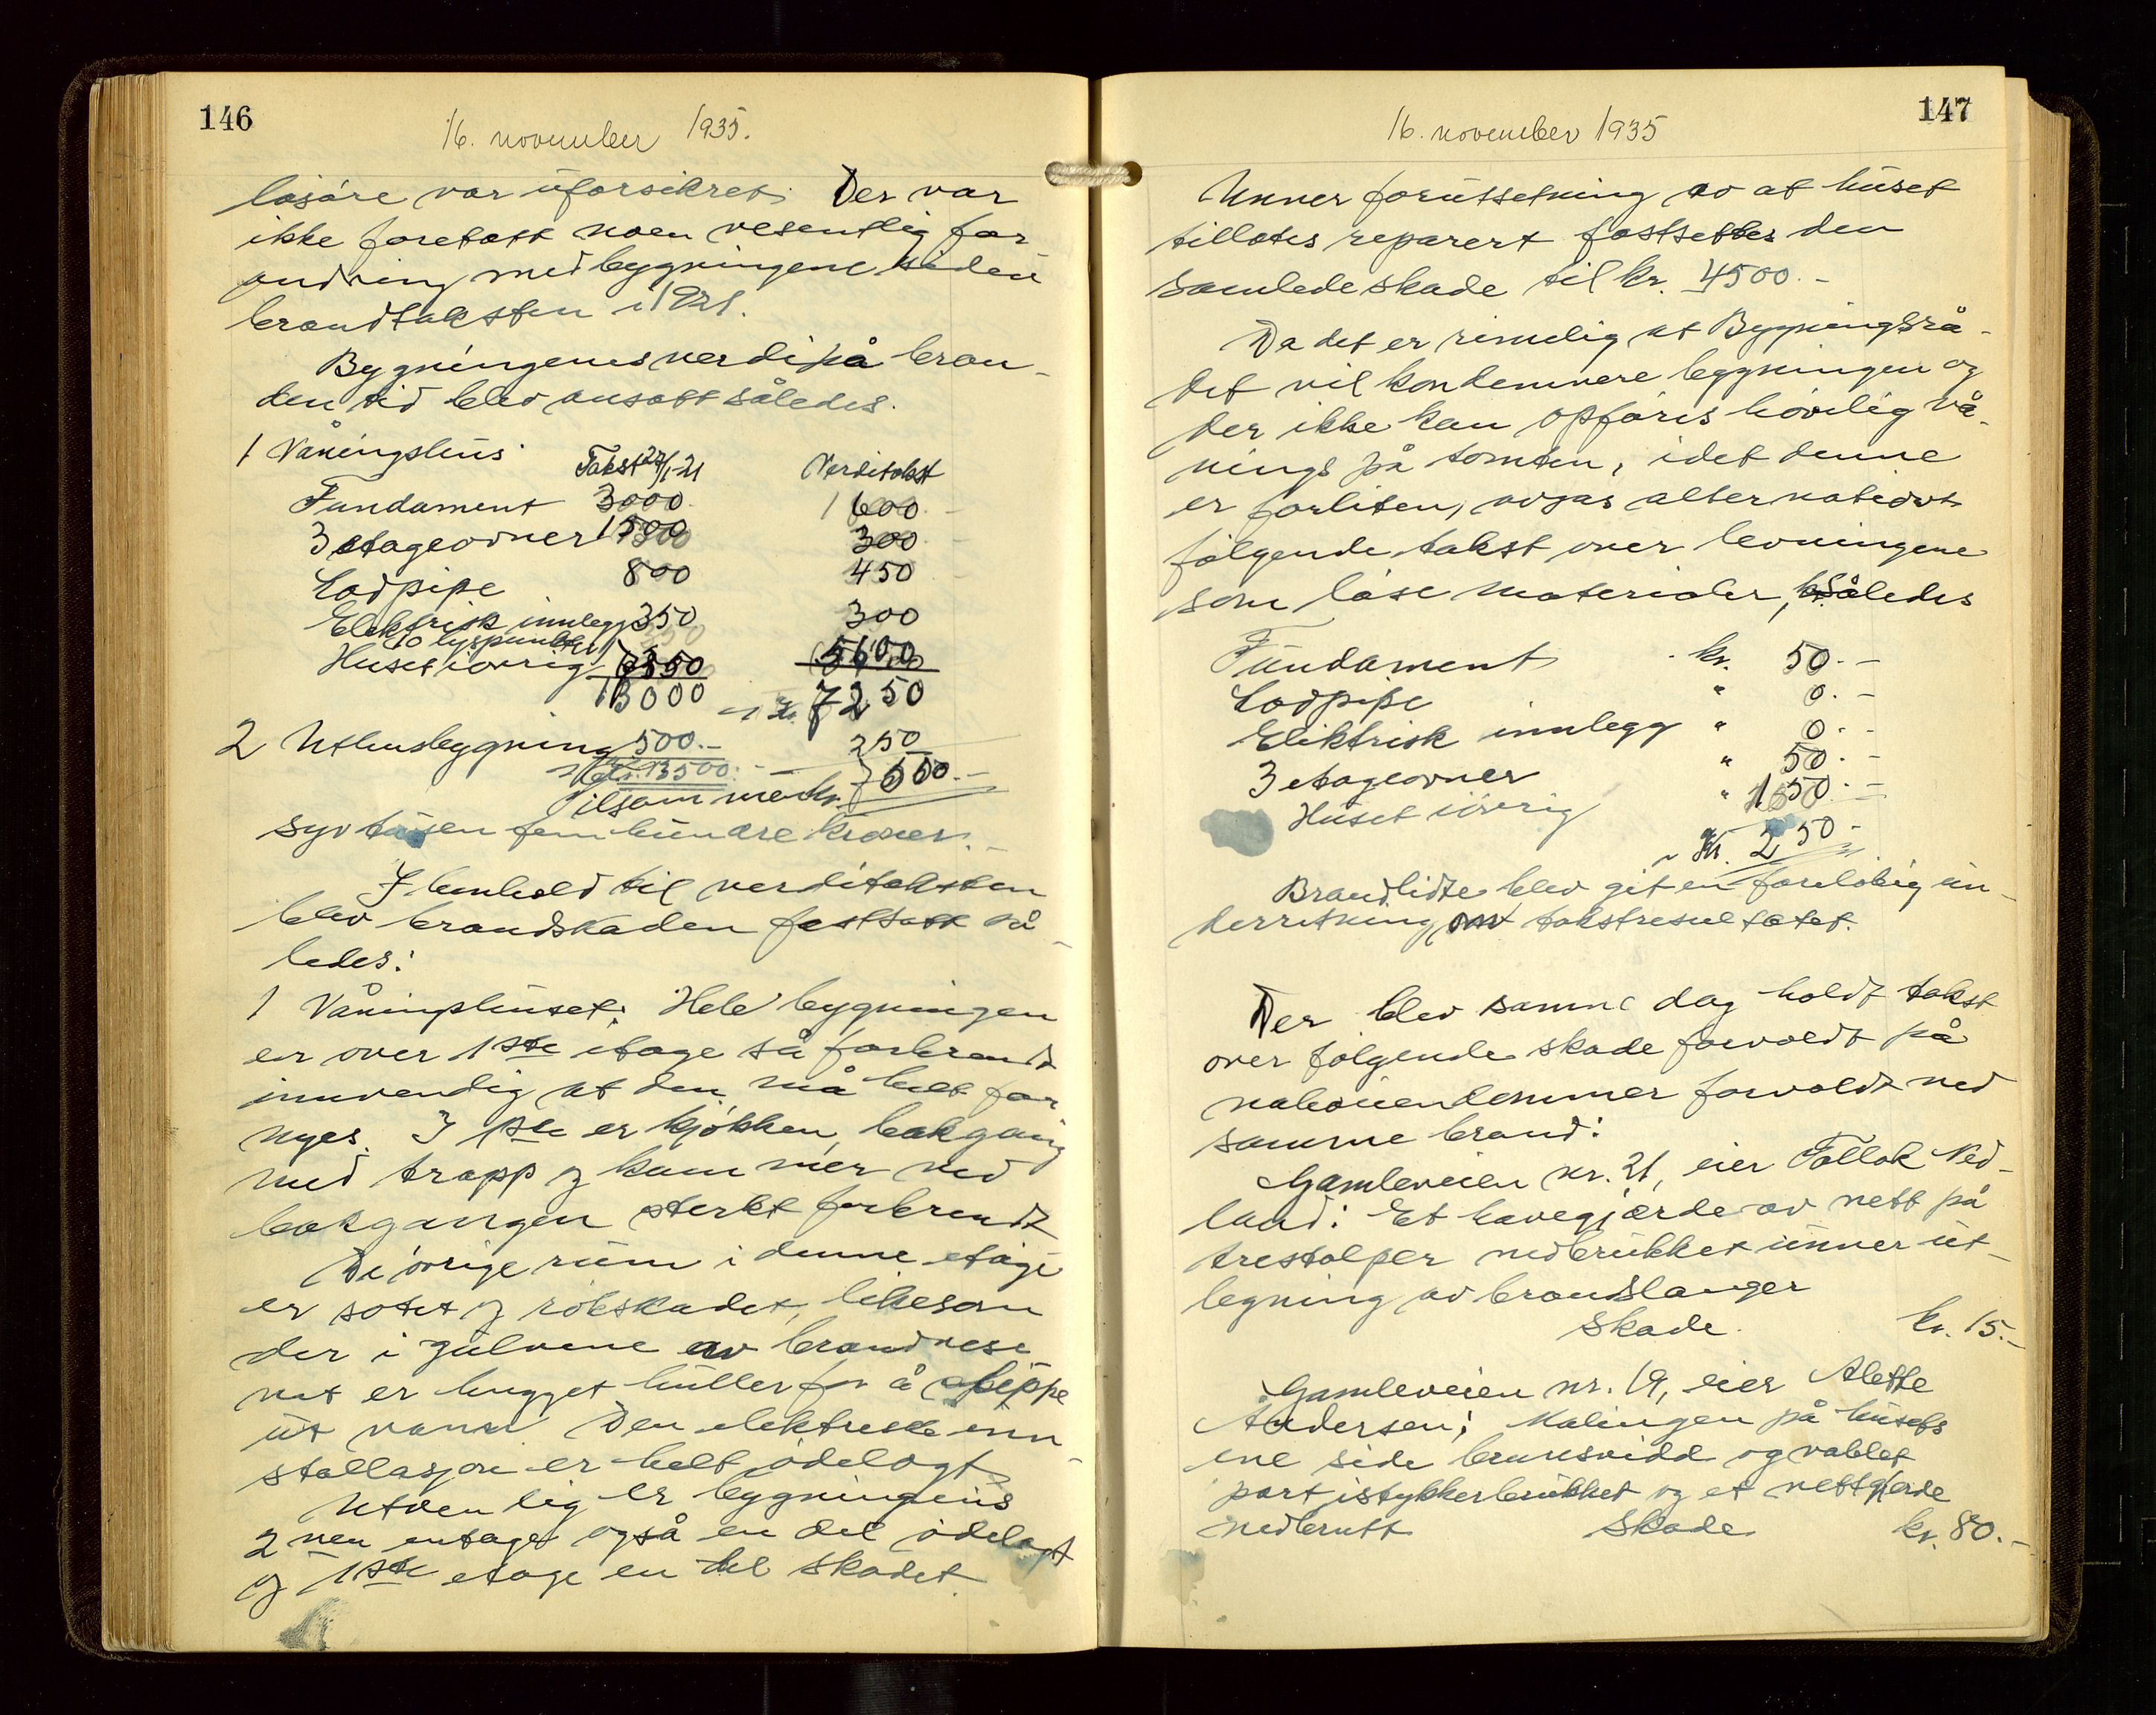 146
16. november 1935.
løsøre var uforsikret. Der var
ikke foretatt noen vesentlig for
andring med bygningene siden
brandtaksten i 1921.
Bygningenes verdi på bran-
dens tid blev ansatt således.
1 Våningshus Takst 27/1-21 Verditakst
Fundament 3000 600
3 etageovner 1500 300
Lodpipe 800 450
Elektrisk innlegg 350 300
10 lyspunkter
Huset iøvrig 7350 5600
13000 kr. 7250
2 Uthusbygning 500.- 250
kr. 13500.-
Tilsammen kr. 7500.-
syv tusen fem hundre kroner.
I henhold til verditaksten
blev brandskaden fastsatt så
ledes:
1 Våningshuset: Hele bygningen
er over 1ste etage så forbrendt
innvendig at den må helt for
nyes. I 1ste er kjøkken, bakgang
med trapp og kammer ved
bakgangen sterkt forbrendt
De øvrige rum i denne etage
er sotet og røkskadet, likesom
der i gulvene av brandvese
net er hugget huller for å slippe
ut vann. Den elektriske inn
stallasjon er helt ødelagt
Utvendig er bygningens
2nen etage også en del ødelagt
og 1ste etage en del skadet.
147
16. november 1935
Unner forutsetning av at huset
tillates reparert fastsettes den
samlede skade til kr. 4500.-
Da det er rimelig at Bygningsrå-
det vil kondemnere bygningen og
der ikke kan opføres høvelig vå-
nings på tomten, idet denne
er for liten, avgas alternativt
følgende takst over levningene
som løse materialer, således
Fundament kr. 50.-
Lodpipe " 0.-
Elektrisk innlegg " 0.-
3 etageovner " 50.-
Huset iøvrig " 150.-
Kr. 250.-
Brandlidte blev git en foreløbig un-
derretning om takstresultatet.
Der blev samme dag holdt takst
over følgende skade forvoldt på
naboeiendommer forvoldt ved
samme brand:
Gamleveien nr. 21, eier Tallak Ved-
land: Et havegjærde av nett på
trestolper nedbrukket unner ut-
legning av brandslanger
Skade kr. 15.-
Gamleveien nr. 19, eier Alette
Andersen; Malingen på husets
ene side brunsvidd og vablet
port istykkerbrukket og et nettgjerde
nedbrutt Skade kr. 80.-